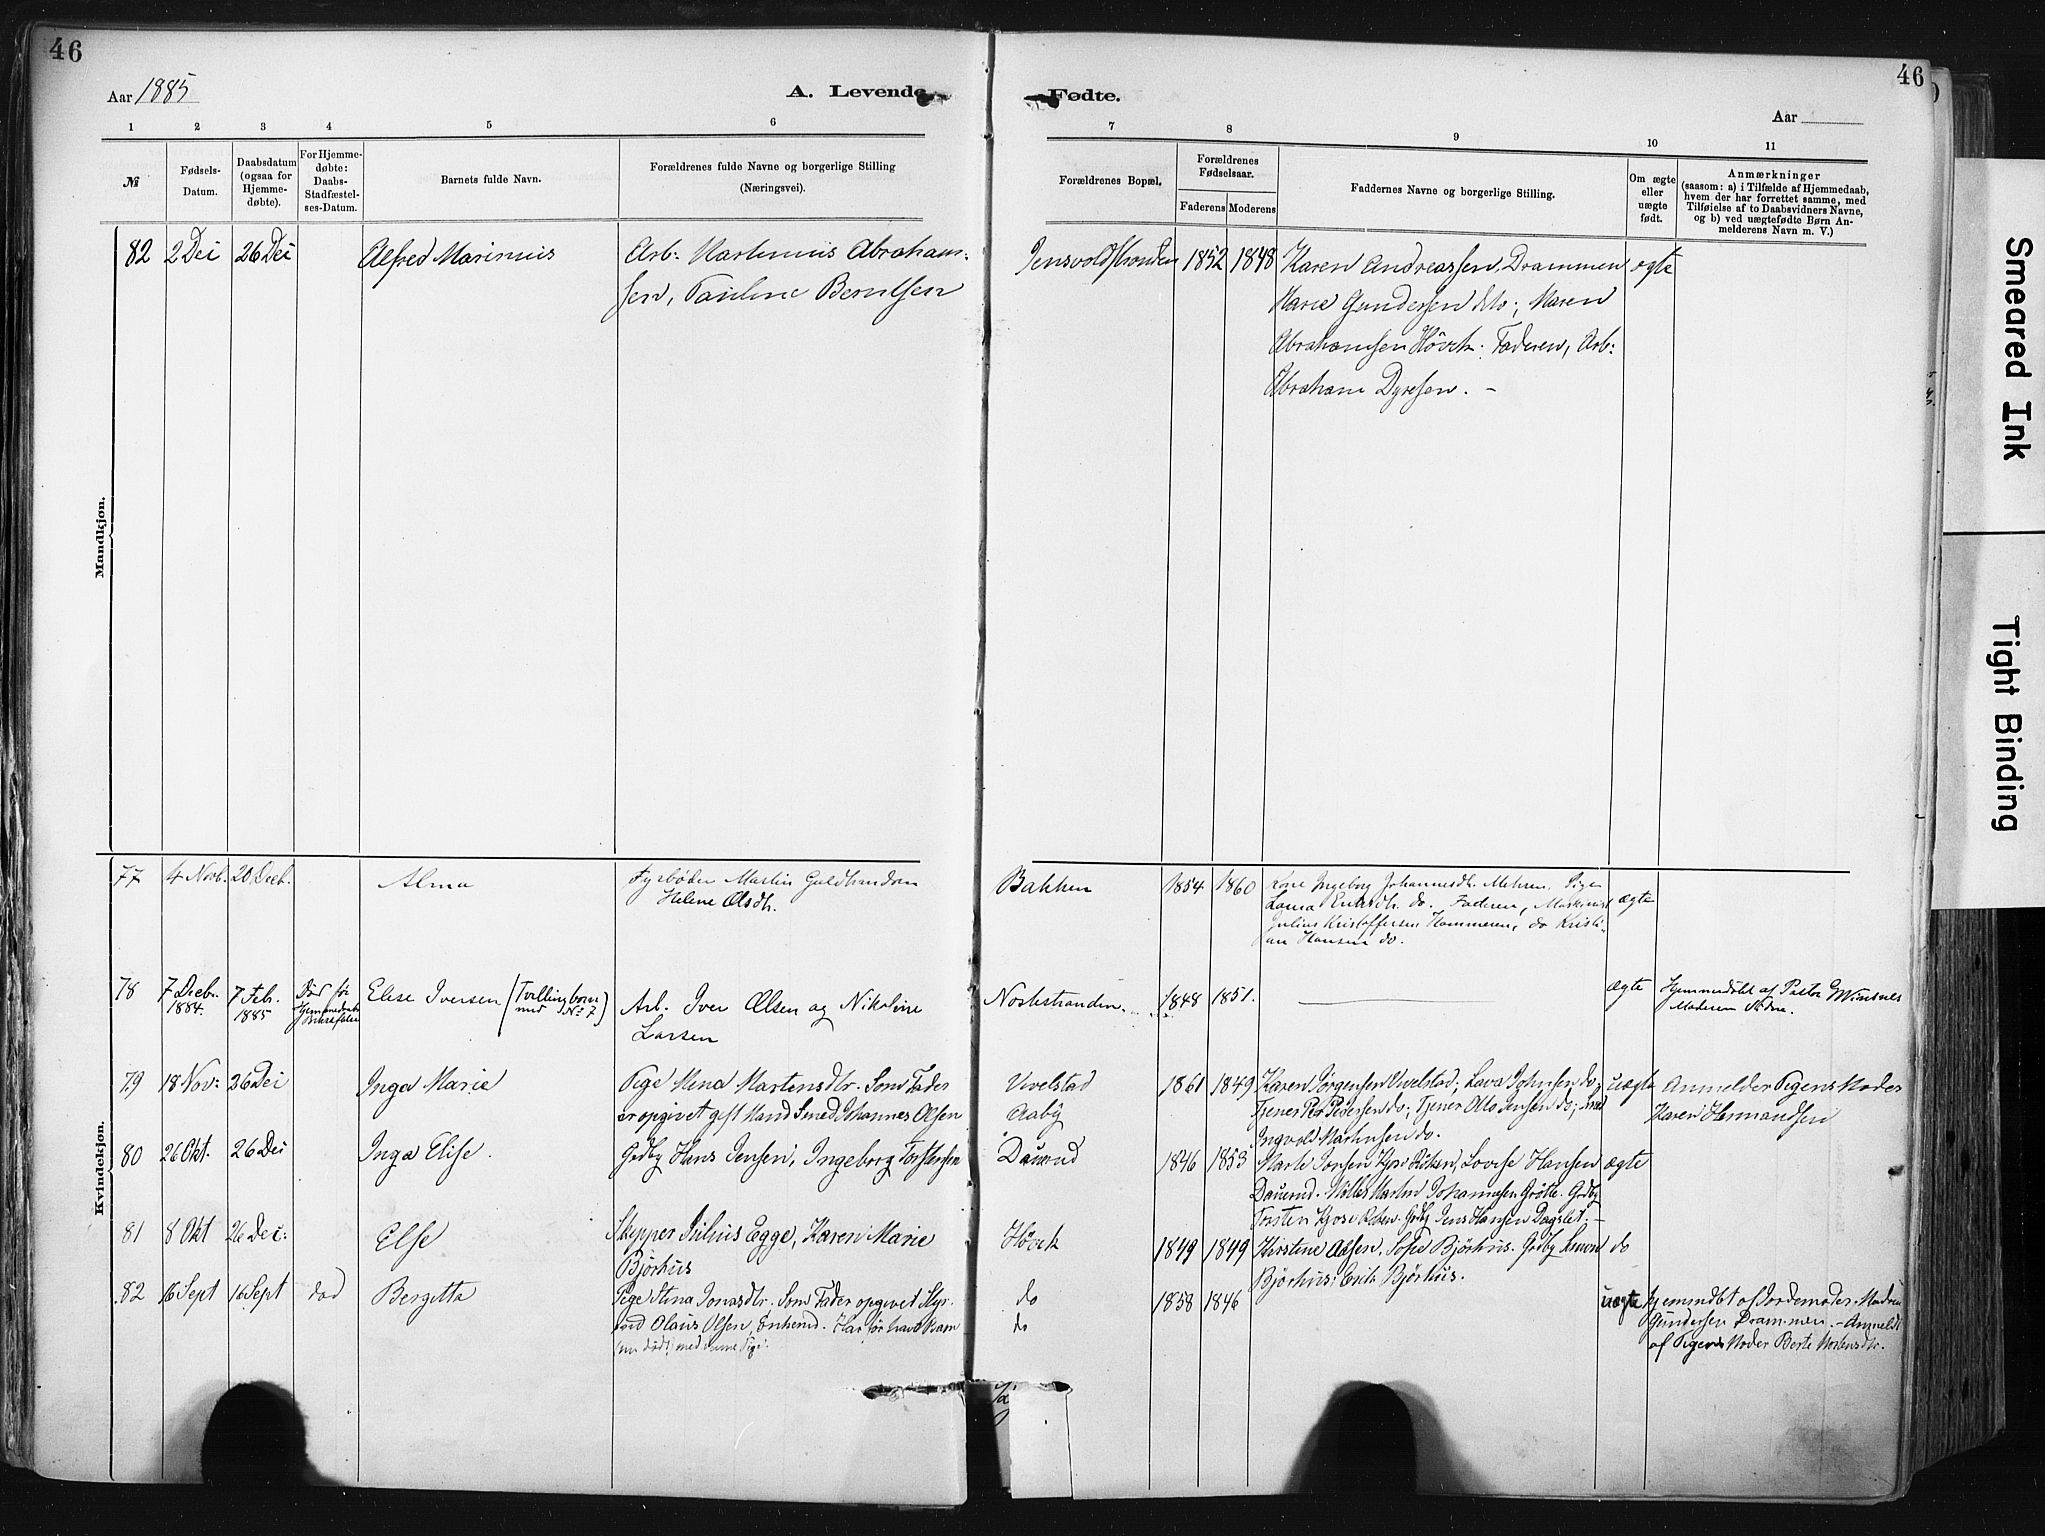 46
46
Aar 1885
A. Levende
Fødte.
Aar
1 2 3 4 5 6 7 8 9 10 11
№
Fødsels-
Datum.
Daabsdatum
(ogsaa for
Hjemme-
døbte).
For Hjemme-
døbte:
Daabs-
Stadfæstel-
ses-Datum.
Barnets fulde Navn.
Forældrenes fulde Navne og borgerlige Stilling
(Næringsvei).
Forældrenes Bopæl.
Forældrenes
Fødselsaar.
Faderens Moderens
Faddernes Navne og borgerlige Stilling.
Om ægte
eller
uægte
født.
Anmærkninger
(saasom: a) i Tilfælde af Hjemmedaab,
hvem der har forrettet samme, med
Tilføielse af to Daabsvidners Navne,
og b) ved uægtefødte Børn An-
melderens Navn m. V.)
Mandkjøn.
82 2 Dei 26 Dei Alfred Marinius Arb: Martinius Abraham-
sen, Pauline Berntsen
1852 1848 Karen Andreassen, Drammen ægte
Marie Gundersen do; Maren
Abrahamsen Høvik. Faderen, Arb:
Abraham Dyresen. –
Kvindekjøn.
77 4 Novb. 20 Decb. Alma Fyrbøder Martin Guldbrandsen
Helene Olsdtr.
Bakken 1854 1860 Kone Ingeborg Johannesdtr. Mehren, Pige
Laura do. Faderen, Maskinist ægte
Julius Kristoffersen Hammeren, do Kristi-
an Hansen do.
78 7 Decbr. 1884. 7 Feb. 1885 Død før
Elise Iversen (Tvillingbarn
med No 7)
Arb. Iver Olsen og Nikoline
Larsen
1848 1851. — ægte Hjemmedøbt af Pastor
Moderen
79 18 Nov: 26 Dei Inga Marie Pige Mina Martensdtr. Som Fader
er opgivet gift Mand Smed Johannes Olsen
Vivelstad
Aaby
1861 1849 Karen Jørgensen Vivelstad; Lava Johnsen do;
Tjener Pedersen do; Tjener Otto Jensen do;
Ingvold Martinsen do.
uægte Anmelder Pigens Moder
Karen Hermandsen
80 26 Okt. 26 Dei Inga Elise. Grdby Hans Jensen, Ingeborg Torstensen
Dauerud 1846 1853 Marte Jonsen Kjos Røken, Lovise Hansen ægte
Dauerud. Møller Martin Johannesen Grøtte. Grdby
Torsten Kjos Røken. Grdby Jens Hansen Dagslet. –
81 8 Okt 26 Dec: Else Skipper Julius Egge, Karen Marie
Bjørhus
Høvik 1849 1849 Kirstine Olsen, Sofie Bjørhus. Grdby do
Bjørhus; Erik Bjørhus.
82 16 Sept 16 Sept død Bergetta Pige Stina Jonasdtr. Som Fader opgivet Styr-
mand Olaus Olsen, Enkemd. Har før havt Barn
(nu dødt) med denne Pige.
do
do
1858 1846 uægte hjemmdbt af Jordemoder
Gundersen Drammen. – Anmeldt
af Pigens Moder Berte Mortensdtr.
Smeared Ink
Tight Binding